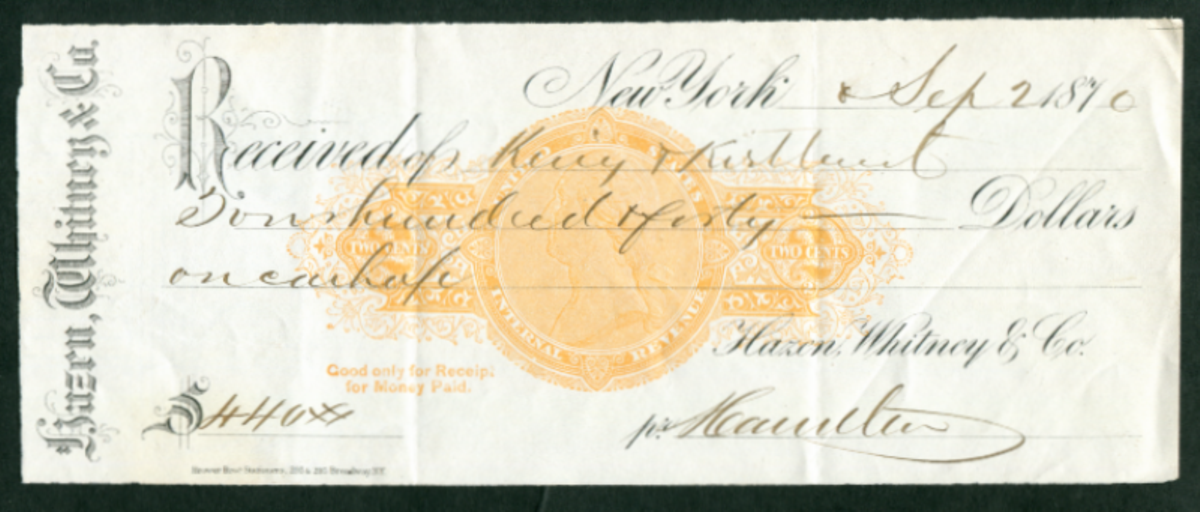 Hazen, Whitney & Co.
New York Sep 2 1870
Received of King & Kirtland
Four hundred & forty — Dollars
on cash of
UNITED STATES
INTERNAL REVENUE
TWO CENTS
TWO CENTS
Hazen, Whitney & Co.
Good only for Receipt
for Money Paid.
$440xx
pr Hamilton
Broadway NY